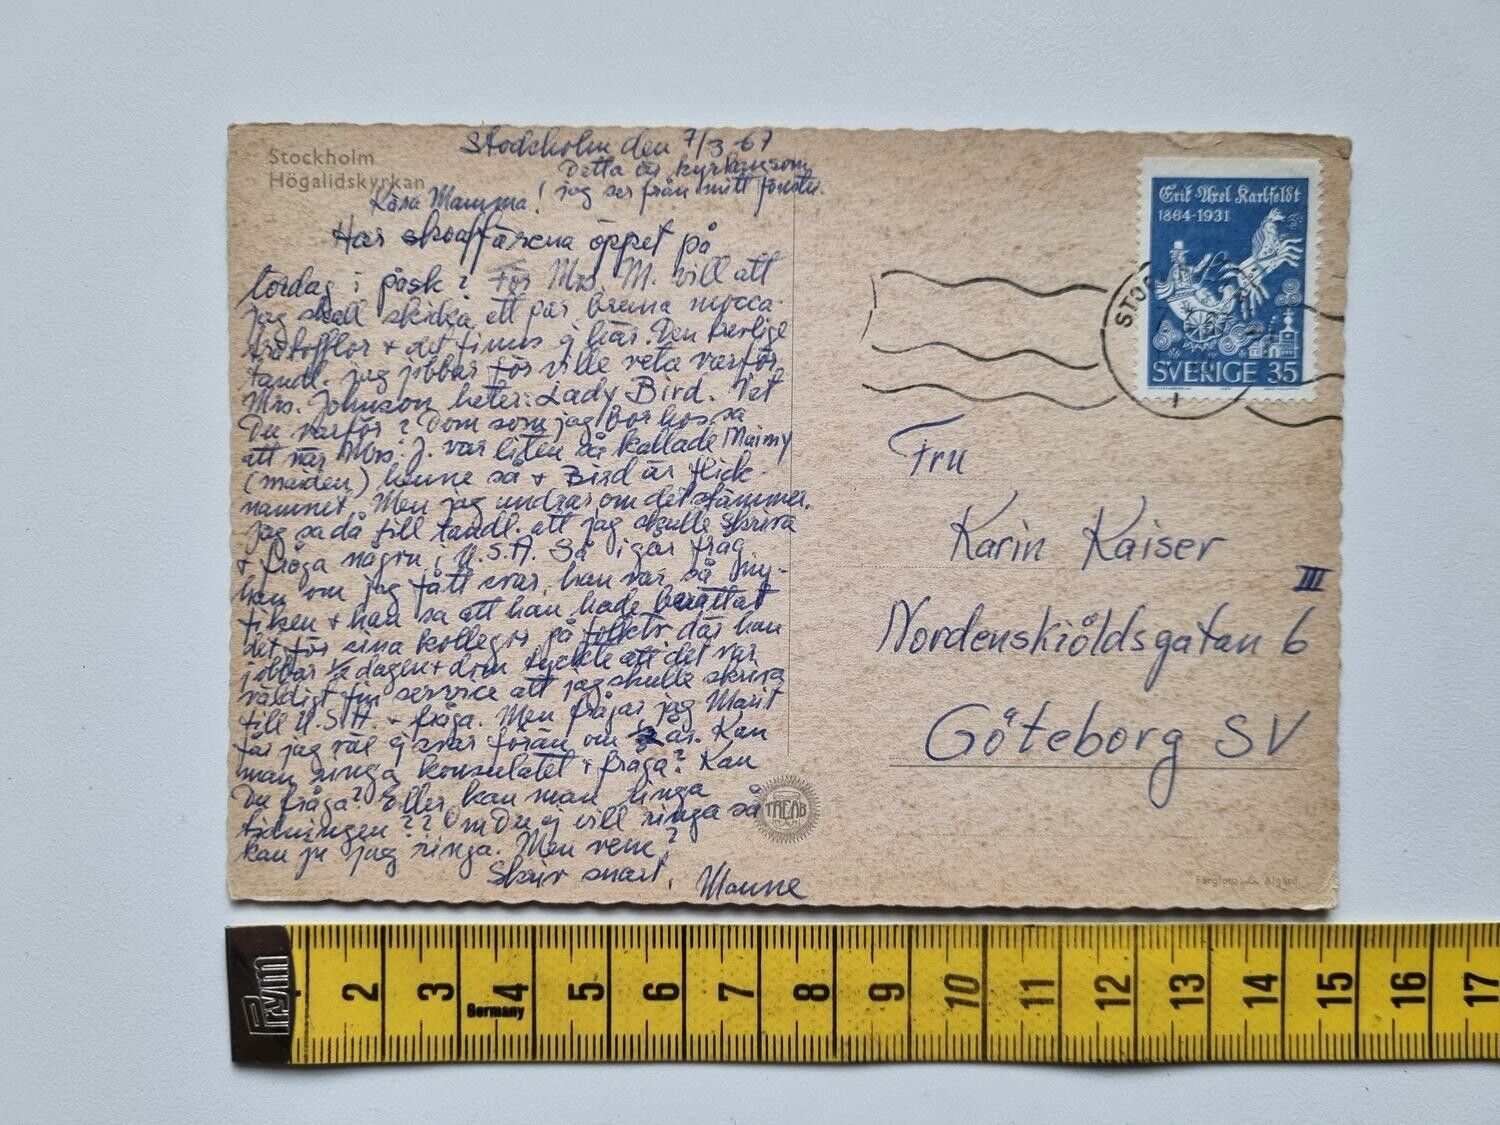 Stockholm
Högalidskyrkan
Stockholm den 7/3-67
Detta är kyrkan som
jag ser från mitt fönster.
Kära Mamma!
Har skoaffärerna öppet på
lördag i påsk? För Mrs. M. vill att
jag skall skicka ett par bruna mocca-
trätofflor + det finns ej här. Den trevlige
tandl. jag jobbar för ville veta varför
Mrs. Johnson heter: Lady Bird. Vet
Du varför? Dom som jag bor hos sa
att när Mrs. J. var liten så kallade
(maiden) henne så + Bird är flick-
namnet. Men jag undrar om det stämmer.
Jag sa då till tandl. att jag skulle skriva
+ fråga någon i U.S.A. Så igår
han om jag fått svar, han var så ny-
fiken + han sa att han hade berättat
det för sina kollegor på folktv där han
jobbar 1/2 dagen + dom tyckte att det var
väldigt fin service att jag skulle skriva
till U.S.A. + fråga. Men frågar jag Marit
får jag väl ej svar förrän om 1/2 år. Kan
man ringa konsulatet + fråga? Kan
Du fråga? Eller kan man ringa
tidningen?? Om Du ej vill ringa så
kan ju jag ringa. Men vem?
Skriv snart,
Erik Axel Karlfeldt
1864-1931
SVERIGE 35
Fru
Karin Kaiser
III
Nordenskiöldsgatan 6
Göteborg SV
Färgfoto: G. Algård
Prym
Germany
2 3 4 5 6 7 8 9 10 11 12 13 14 15 16 17